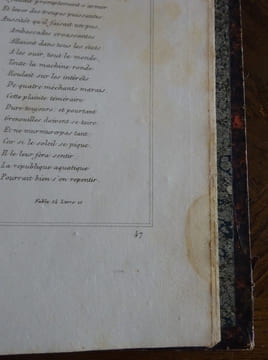 promptement s'armer
Et lever des troupes puissantes
Aussitôt qu'il faisait un pas,
Ambassades croassantes
Allaient dans tous les états
A les ouir, tout le monde,
Toute la machine ronde
Roulait sur les intérêts
De quatre méchants marais.
Cette plainte téméraire
Dure toujours; et pourtant
Grenouilles doivent se taire
Et ne murmurer pas tant:
Car si le soleil se pique,
Il le leur fera sentir
La république aquatique
Pourrait bien s'en repentir.
Fable 24 Livre 12
47